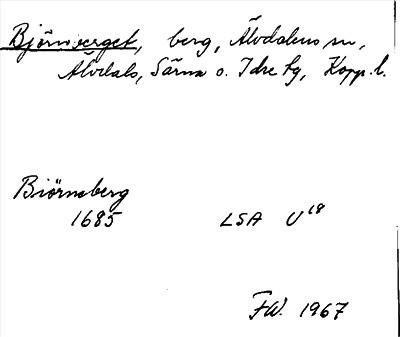 Björnberget, berg, Älvdalens sn,
Älvdals, Särna o. Idre tg, Kopp. l.
Biörneberg
1685 LSA U18
FW. 1967